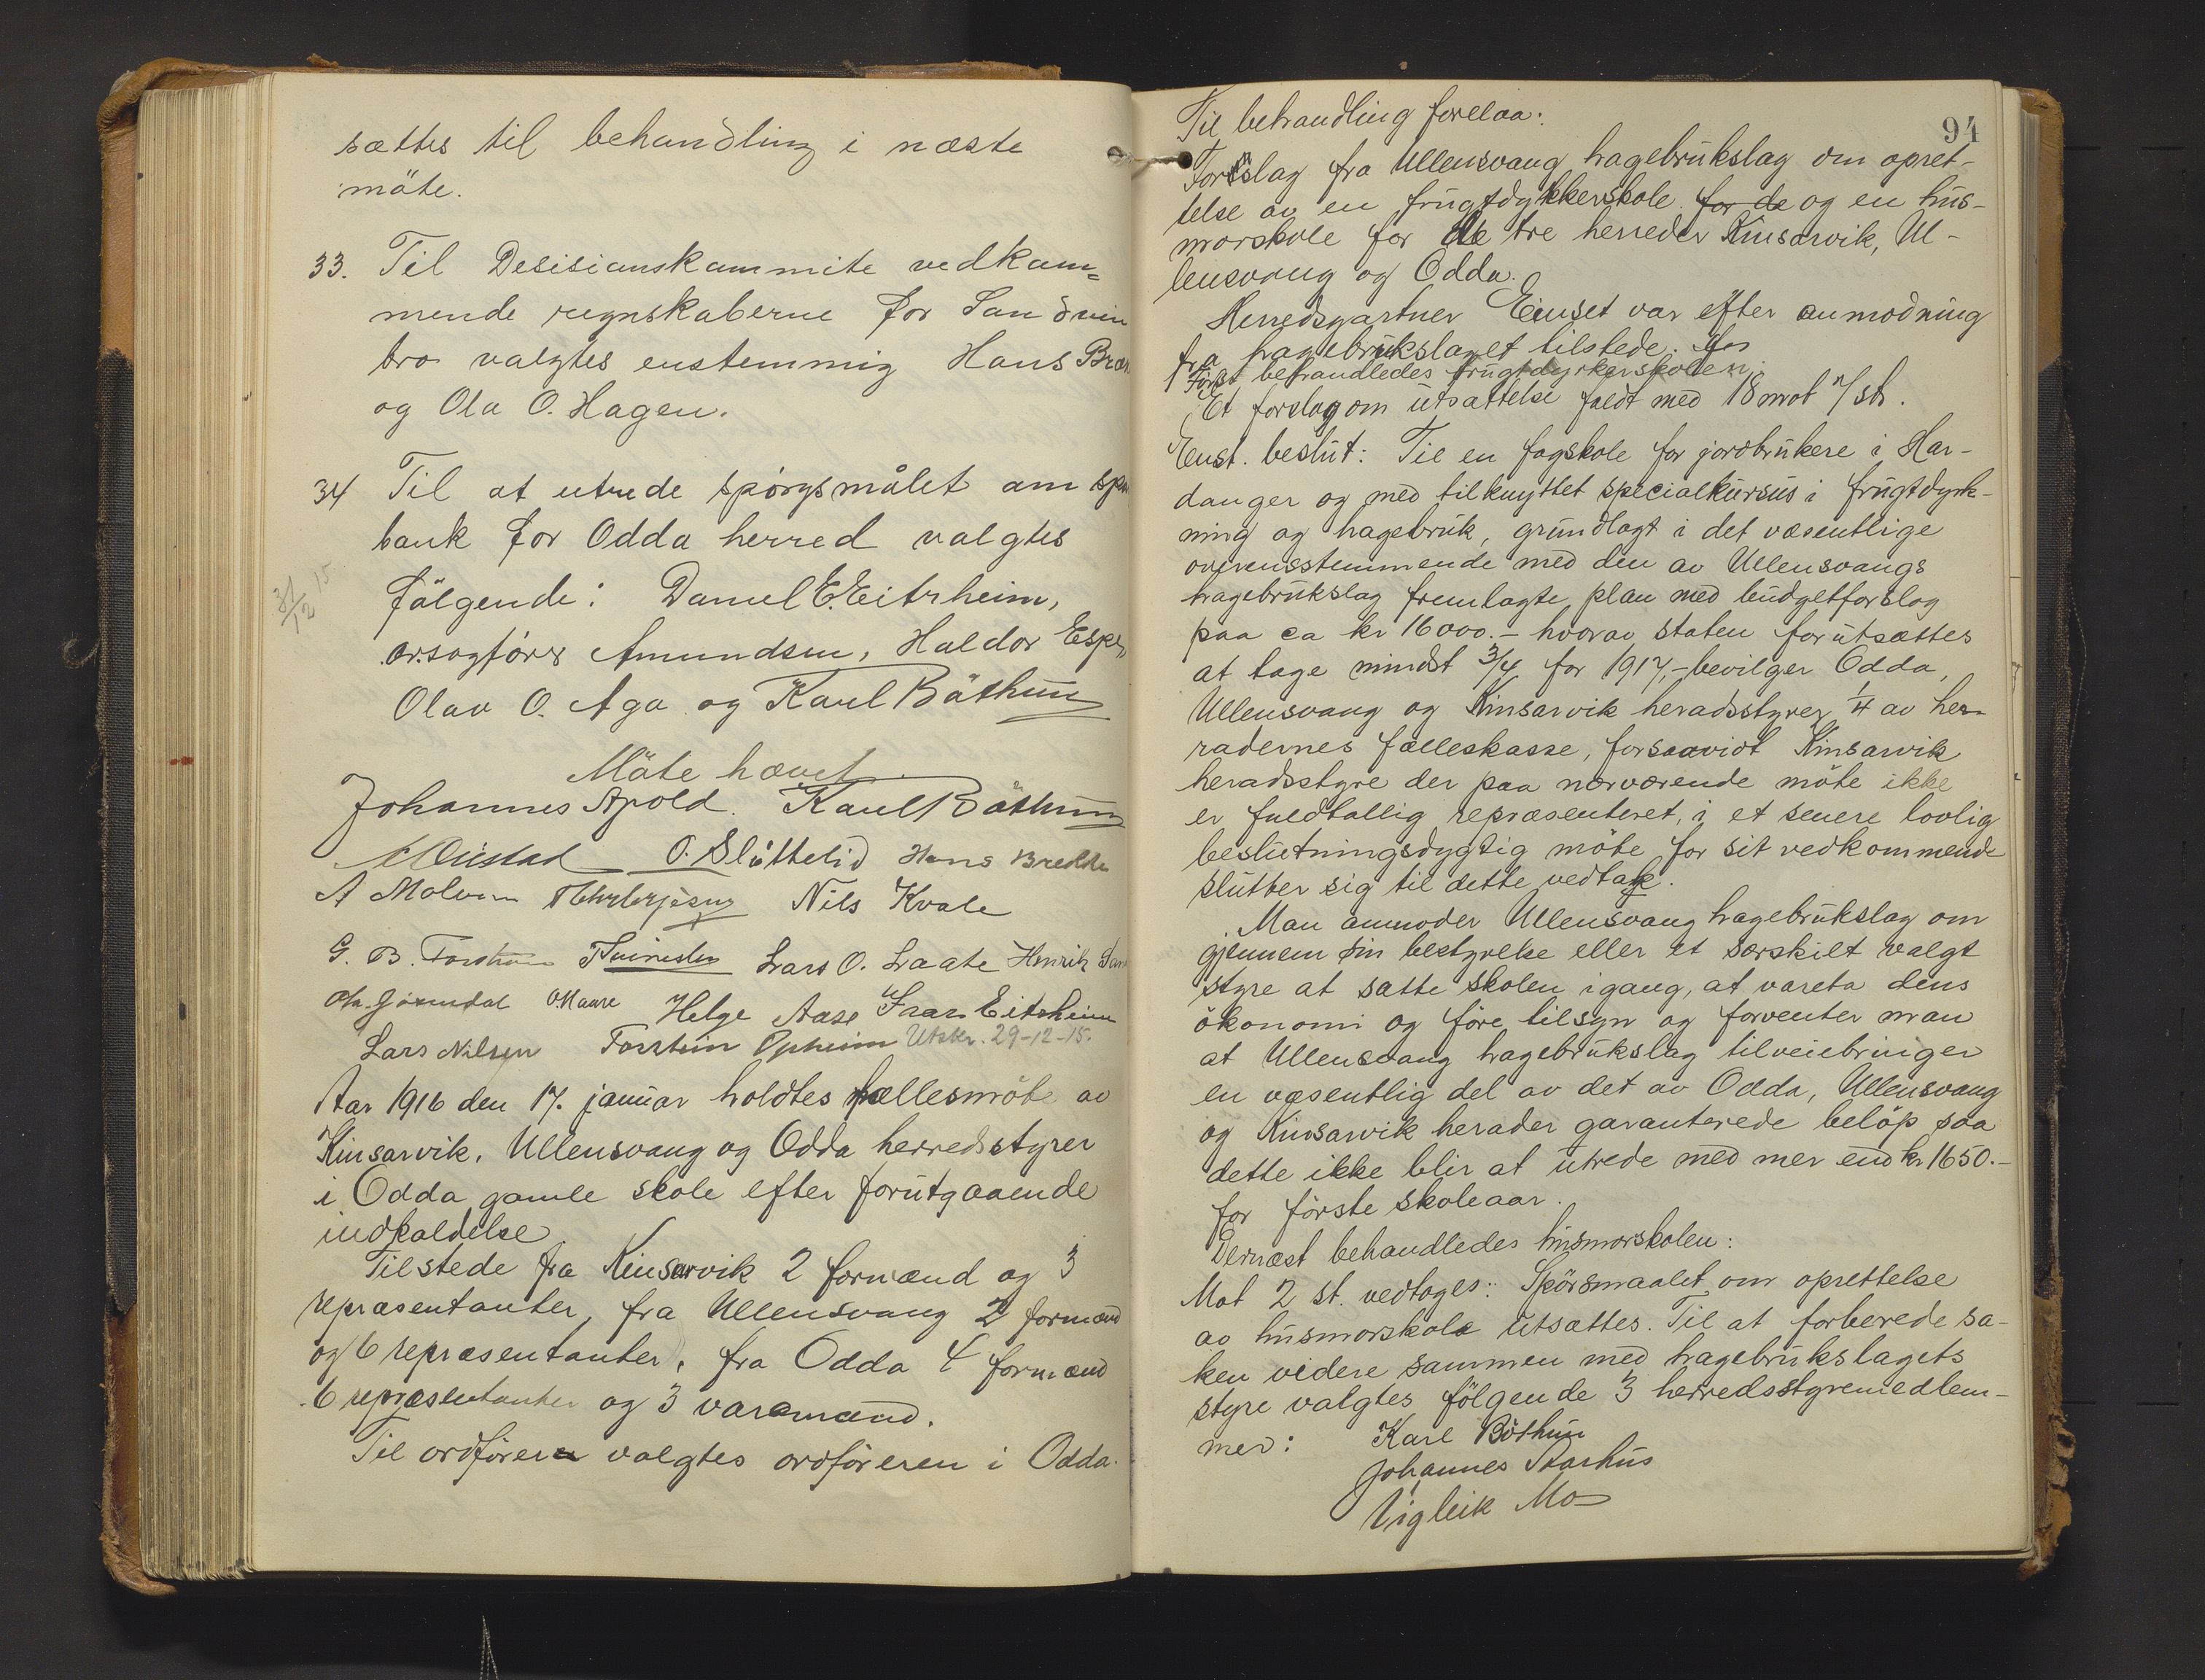 sættes til behandling i næste
möte.
33. Til Desisionskommite vedkom=
mende regnskaberne for Sandvin
bro valgtes enstemmig Hans
og Ola O. Hagen.
34 Til at utrede spörgsmålet om
bank for Odda herred valgtes
31/12 15
fölgende: Daniel E. Eitrheim,
o.r.sagförer Amundsen, Haldor
Olav O. Aga og Karl Böthun
Möte hævet.
Johannes Apold. Karl Böthun
O. Slåttelid Hans
A Nils Kvale
G. B. Lars O. Henrik
O. Maare Helge Aase Eitrheim
Lars Nilsen Torstein Opheim Utskr. 29-12-15.
Aar 1916 den 17. januar holdtes fællesmöte av
Kinsarvik, Ullensvang og Odda herredsstyrer
i Odda gamle skole efter forutgaaende
indkaldelse
Tilstede fra Kinsarvik 2 formænd og 3
repræsentanter, fra Ullensvang 2 formænd
og 6 repræsentanter, fra Odda 4 formænd
6 repræsentanter og 3 varamænd.
Til ordförer valgtes ordföreren i Odda.
94
Til behandling forelaa:
Forslag fra Ullensvang hagebrukslag om opret-
telse av en frugtdyrkkerskole for de og en hus-
morskole for de tre herreder Kinsarvik, Ul-
lensvang og Odda.
Herredsgartner Einset var efter anmodning
fra hagebrukslaget tilstede.
Först behandledes frugtdyrkerskolen
Et forslag om utsættelse faldt med 18 mot 7/st.
Enst. beslut: Til en fagskole for jordbrukere i Har-
danger og med tilknyttet specialkursus i frugtdyrk-
ning og hagebruk, grundlagt i det væsentlige
overensstemmende med den av Ullensvangs
hagebrukslag fremlagte plan med budgetforslag
paa ca kr 16000.- hvorav staten forutsættes
at tage mindst 3/4 for 1917,- bevilger Odda,
Ullensvang og Kinsarvik heradsstyrer 1/4 av her-
radernes fælleskasse, forsaavidt Kinsarvik
heradsstyre der paa nærværende möte ikke
er fuldtallig repræsenteret, i et senere lovlig
beslutningsdygtig möte for sit vedkommende
slutter sig til dette vedtak.
Man anmoder Ullensvang hagebrukslag om
gjennem sin bestyrelse eller et særskilt valgt
styre at sætte skolen igang, at vareta dens
ökonomi og före tilsyn og forventer man
at Ullensvang hagebrukslag tilveiebringer
en væsentlig del av det av Odda, Ullensvang
og Kinsarvik herader garanterede belöp saa
dette ikke blir at utrede med mer end kr 1650.-
for förste skoleaar.
Dernæst behandledes husmorskolen:
Mot 2 st. vedtoges: Spörsmaalet om oprettelse
av husmorskole utsættes. Til at forberede sa-
ken videre sammen med hagebrukslagets
styre valgtes fölgende 3 herredsstyremedlem-
mer: Karl Böthun
Johannes Aarhus
Vigleik Mo